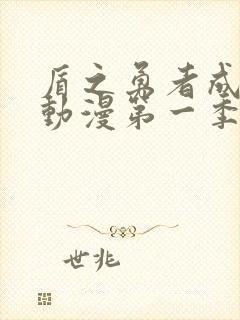 盾之勇者成
動漫第一季
世兆